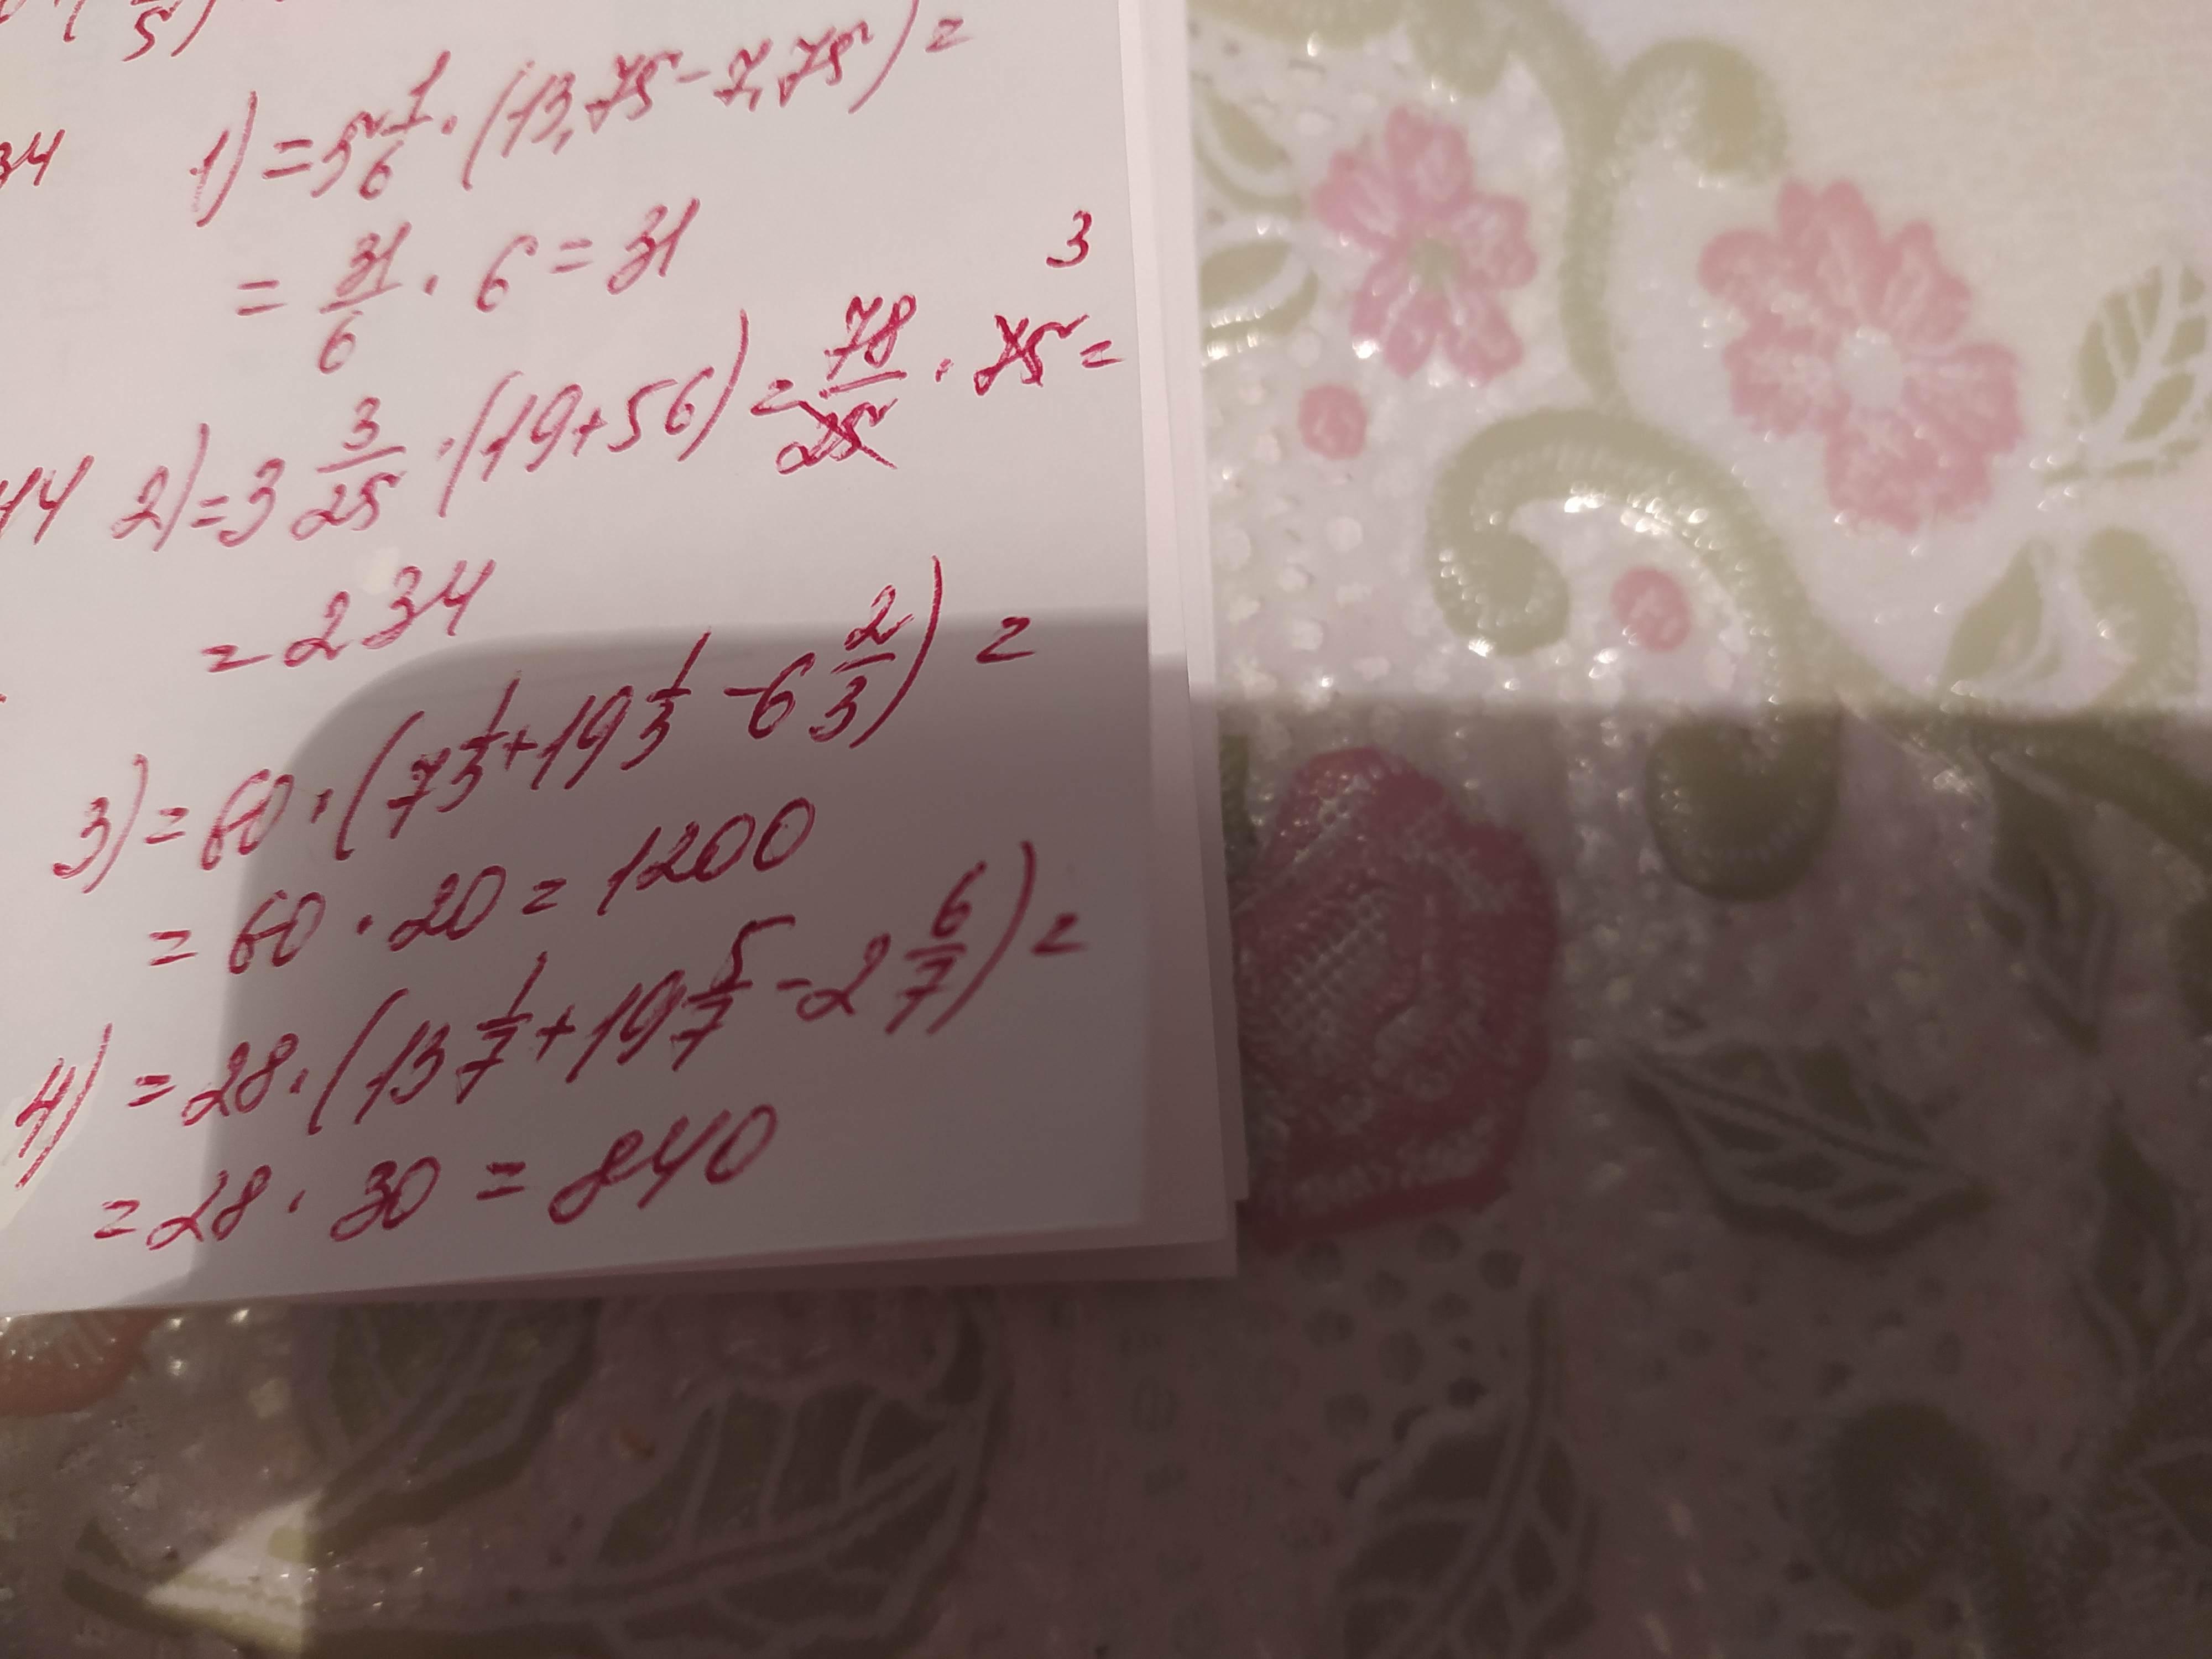 5)
1) = 5 1/6 · (13,75 - 7,75) =
34
= 31/6 · 6 = 31
3
44 2) = 3 3/25 · (19 + 56) = 78/25 · 75 =
= 234
3) = 60 · (7 1/3 + 19 1/3 - 6 2/3) =
= 60 · 20 = 1200
4) = 28 · (13 1/7 + 19 5/7 - 2 6/7) =
= 28 · 30 = 840